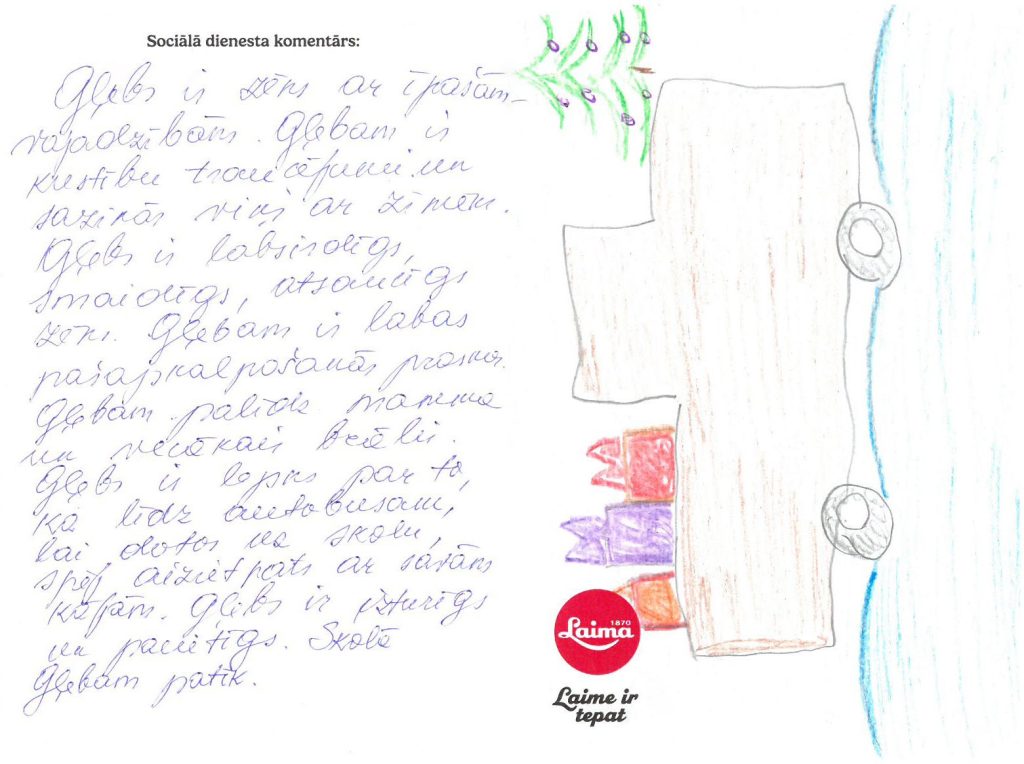 Sociālā dienesta komentārs:
Gļebs ir zēns ar īpašām
vajadzībām. Gļebam ir
kustību traucējumi un
sazinās viņš ar zīmēm.
Gļebs ir labsirdīgs,
smaidīgs, atsaucīgs
zēns. Gļebam ir labas
pašapkalpošanās prasmes.
Gļebam palīdz mamma
un vecākais brālis.
Gļebs ir lepns par to,
kā līdz autobusam,
lai dotos uz skolu,
spēj aiziet pats ar savām
kājām. Gļebs ir izturīgs
un pacietīgs. Skolā
Gļebam patīk.
Laima
1870
Laime ir
tepat